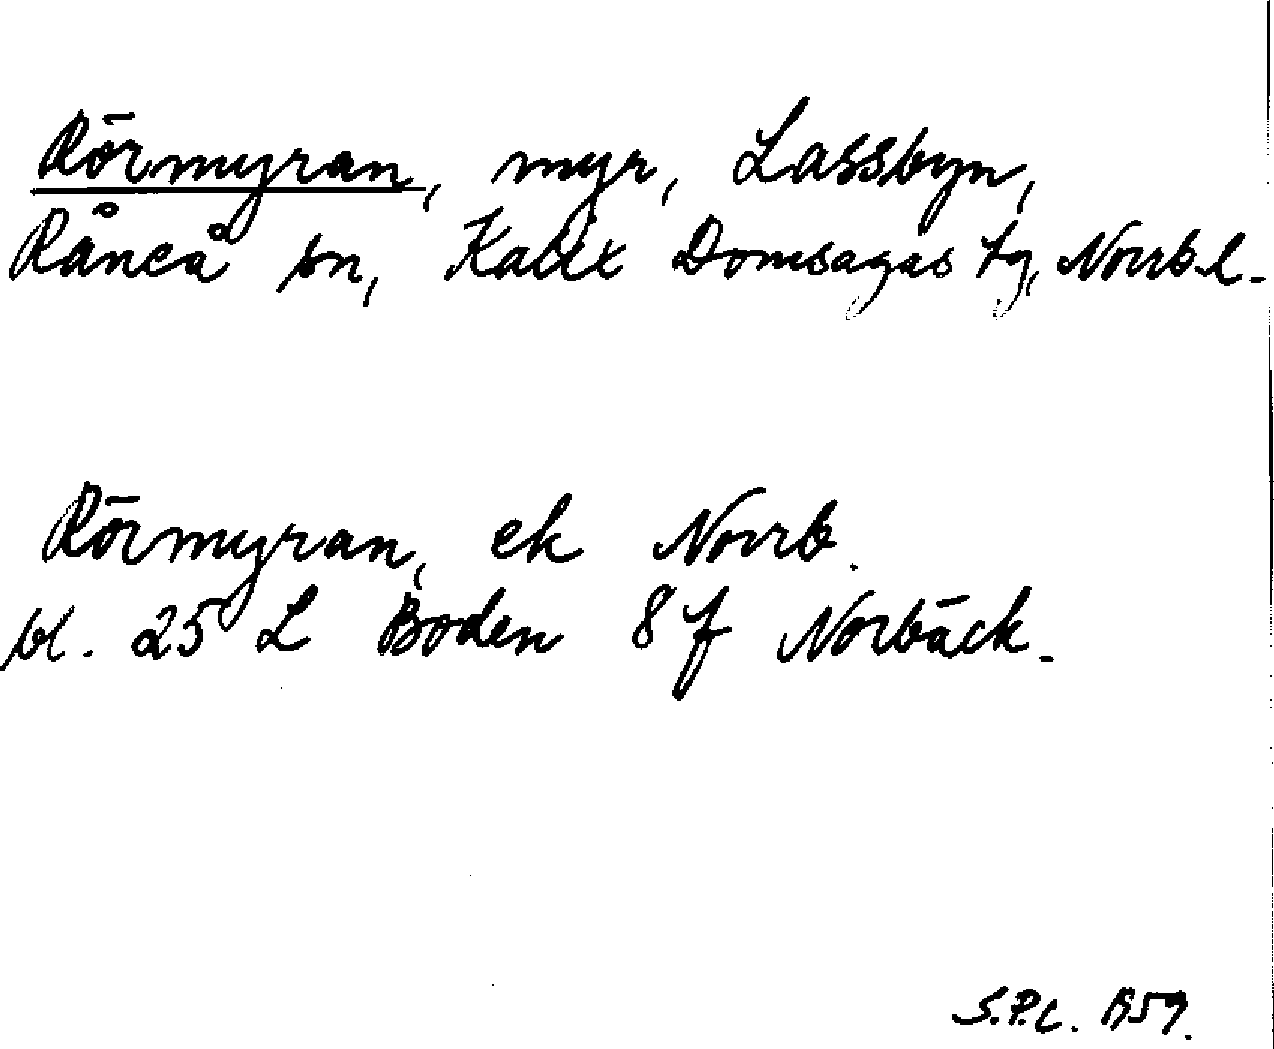 Rörmyran, myr, Lassbyn,
Råneå sn, Kalix Domsagas tg, Norrb. l.
Rörmyran, ek Norrb.
bl. 25 L Boden 8 f Norbäck.
S.P.L. 1959.